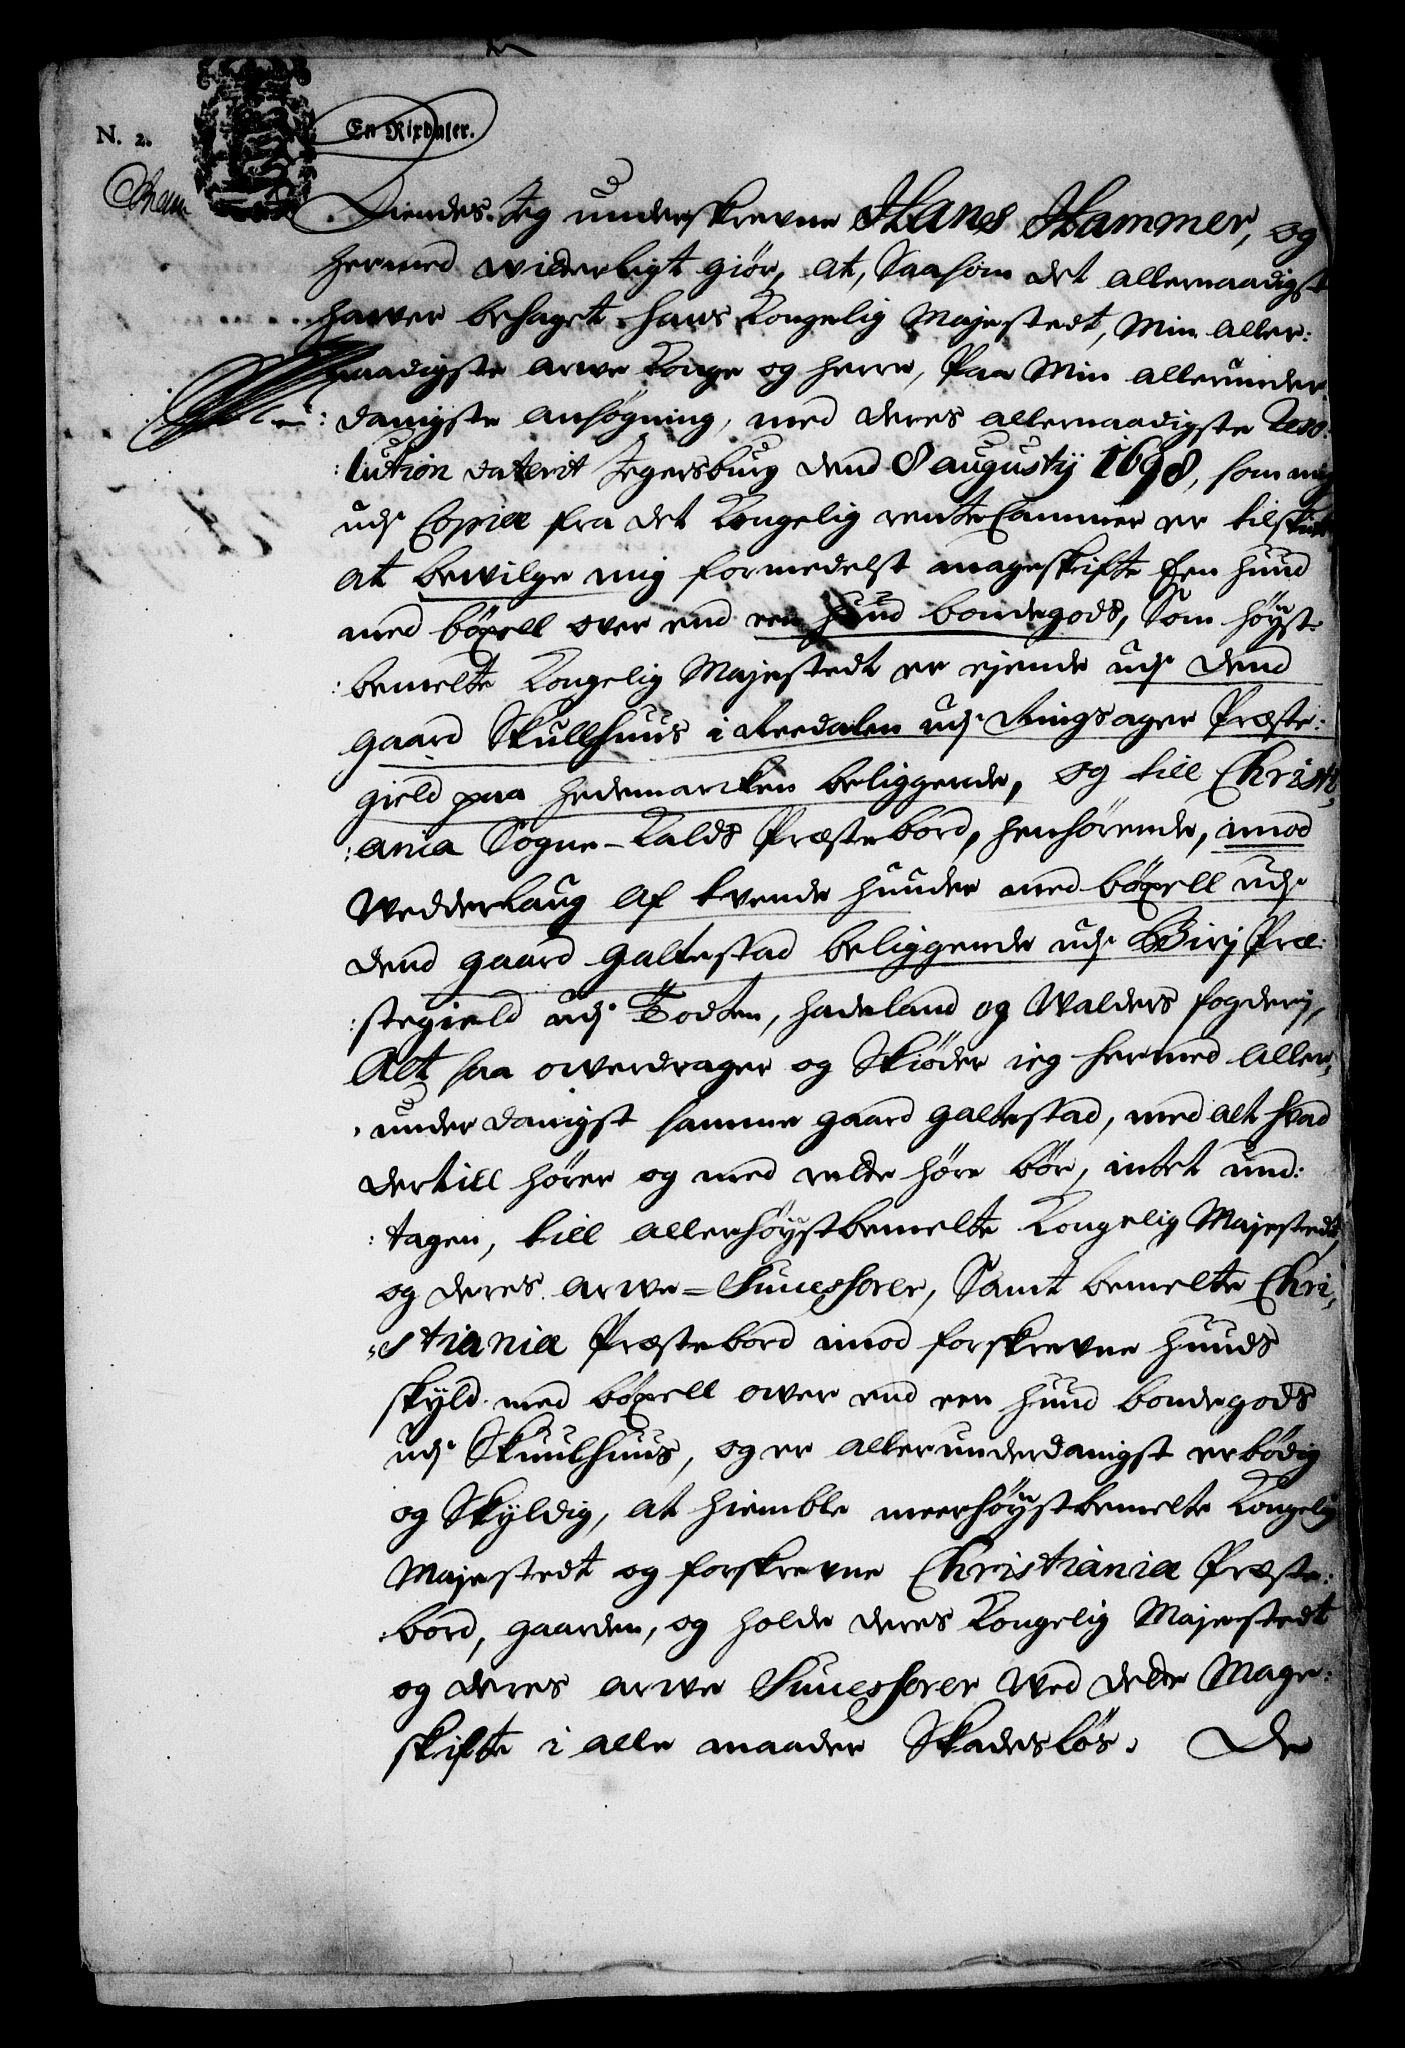 N. 2.
En Rixdaler.
Kiendes Jeg underskrevne Hans Hammer, og
hermed witterligt giör, at, Saasom det allernaadigst
hawer behaget hans Kongelig Majestedt, Min aller:
naadigste arwe Konge og herre, Paa Min allerunder:
danigste ansögning, med deres allernaadigste Reso:
:lution daterit Jegersburg dend 8 augustij 1698, som mig
udj Copiæ fra det Kongelig rente Cammer er tilskickt
at bewilge mig formedelst mageskifte Een hund
med böxell over end een hund bondegods, Som höyst:
:bemelte Kongelig Majestedt er ejende udj dend
gaard Skullhuus i Reedalen udj Ringsager Præste:
gield paa hedemarcken beliggende, og till Christi,
:ania Sogne-Kalds Præstebord, henhörende, imod
Wedderlaug af tvende hunder med böxell udj
dend gaard galtestad beliggende udj Birj Præ:
:stegield udj Todten, hadeland og Walders fogderj,
Alt saa owerdrager og Skiöder ieg hermed aller,
,underdanigst samme gaard galtestad, med alt hvad
dertill hörer og med rette höre bör, intet und:
:tagen, till allerhöystbemelte Kongelig Majestedt,
og deres arwe=Successorer, Samt bemelte Chri,
,,stiania Præstebord imod forskrevne hunds
skyld med böxell ower end een hund bondegods
udj Skuulhuus, og er allerunderdanigst erbödig
og Skyldig, at hiemble meerhöystbemelte Kongelig
Majestedt og forskrevne Christiania Præste:
:bord, gaarden, og holde deres Kongelig Majestedt
og deres arwe Successorer wed dette Mage:
skifte i alle maader Skadeslös. De